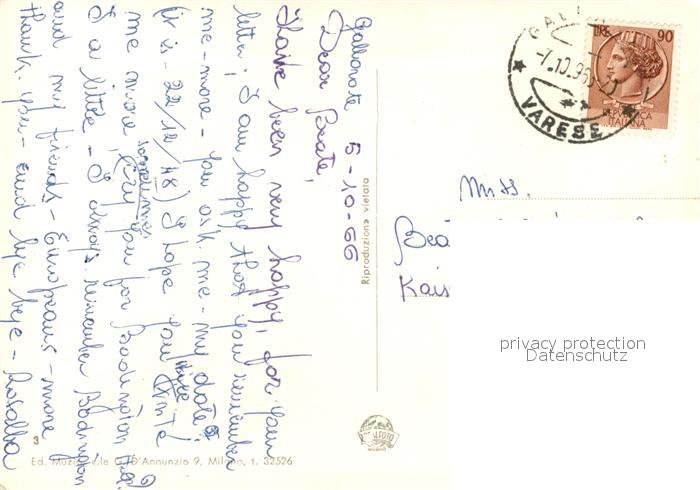 Gallarate 5-10-66
Dear Beate,
I have been very happy, for your
letter; I am happy that you remember
me - more - you ask me - my date
(it is - 22/12/48) I hope you write
me more, sometimes, by you for Badington
I a little - I always remember Badington
and my friends - Europeans - more
thank you - and bye bye - Rosalba
Riproduzione vietata
GAL
-7.10.
VARESE
LIRE 90
REPVBBLICA
ITALIANA
Miss.
Bea
Kais
privacy protection
Datenschutz
3
Ed. Muzio v.le G. D'Annunzio 9, Milano, t. 32526
MILANO